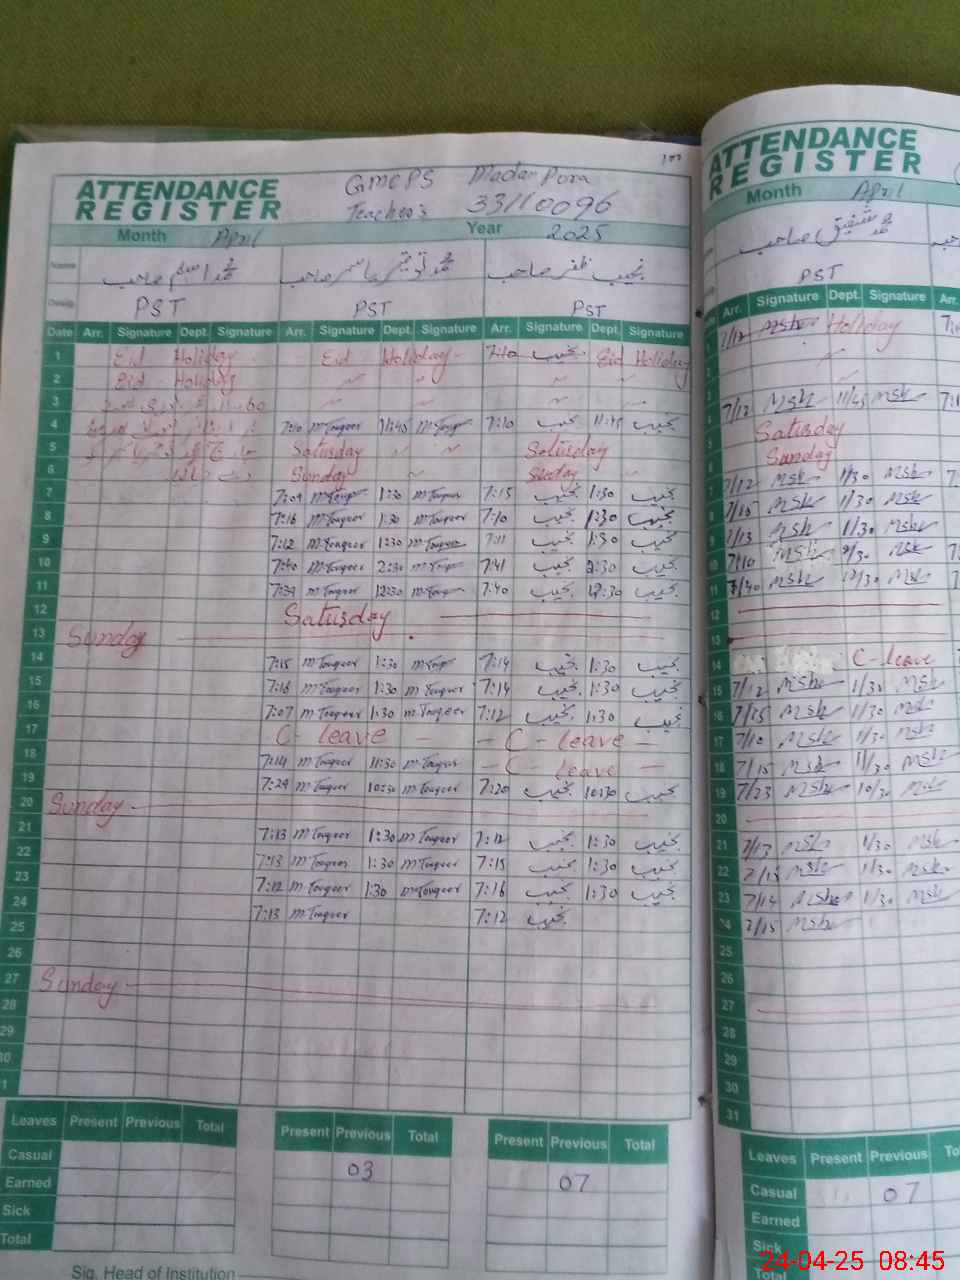 ATTENDANCE REGISTER
GMCPS Madan Pora
Teacher's 33110096
Month April Year 2025
Name محمد اسلم صاحب محمد توقیر ناصر صاحب نجیب ظفر صاحب
PST PST PST
Date Arr. Signature Dept. Signature Arr. Signature Dept. Signature Arr. Signature Dept. Signature
1 Eid Holiday Eid Holiday 7:10 نجیب Eid Holiday
2 Eid Holiday
3
4 7:10 M.Touqeer 11:45 7:10 نجیب 11:45 نجیب
5 Saturday Saturday
6 Sunday Sunday
7 7:09 1:30 M.Touqeer 7:15 نجیب 1:30 نجیب
8 7:16 M.Touqeer 1:30 M.Touqeer 7:10 نجیب 1:30 نجیب
9 7:12 M.Touqeer 1:30 M.Touqeer 7:11 نجیب 1:30 نجیب
10 7:40 M.Touqeer 2:30 7:41 نجیب 2:30 نجیب
11 7:39 M.Touqeer 12:30 7:40 نجیب 12:30 نجیب
12 Saturday
13 Sunday
14 7:15 M.Touqeer 1:30 7:14 نجیب 1:30 نجیب
15 7:16 M.Touqeer 1:30 M.Touqeer 7:14 نجیب 1:30 نجیب
16 7:07 M.Touqeer 1:30 M.Touqeer 7:12 نجیب 1:30 نجیب
17 C- leave C- leave
18 7:14 M.Touqeer 11:30 M.Touqeer C- leave
19 7:29 M.Touqeer 10:30 M.Touqeer 7:20 نجیب 10:30 نجیب
20 Sunday
21 7:13 M.Touqeer 1:30 M.Touqeer 7:12 نجیب 1:30 نجیب
22 7:13 M.Touqeer 1:30 M.Touqeer 7:15 نجیب 1:30 نجیب
23 7:12 M.Touqeer 1:30 M.Touqeer 7:16 نجیب 1:30 نجیب
24 7:13 M.Touqeer 7:12 نجیب
25
26
27 Sunday
28
29
30
Leaves Present Previous Total Present Previous Total Present Previous Total
Casual 03 07
Earned
Sick
Total
Sig. Head of Institution
ATTENDANCE REGISTER
Month April
محمد شفیق صاحب
PST
Arr. Signature Dept. Signature Arr.
7/12 Msh Holiday
7/12 Msh 11/45 Msh
Saturday
Sunday
7/12 Msh 1/30 Msh
8 7/15 Msh 1/30 Msh
9 7/13 Msh 1/30 Msh
10 7/40 Msh Msh
11 7/40 Msh 12/30 Msh
12
13
14 C- leave
15 7/12 Msh 1/30 Msh
16 7/15 Msh 1/30 Msh
17 7/10 Msh 1/30 Msh
18 7/15 Msh 11/30 Msh
19 7/23 Msh 10/30 Msh
20
21 7/13 Msh 1/30 Msh
22 7/13 Msh 1/30 Msh
23 7/14 Msh 1/30 Msh
24 7/15 Msh
25
26
27
28
29
30
31
Leaves Present Previous
Casual 07
Earned
Sick
Total
24-04-25 08:45